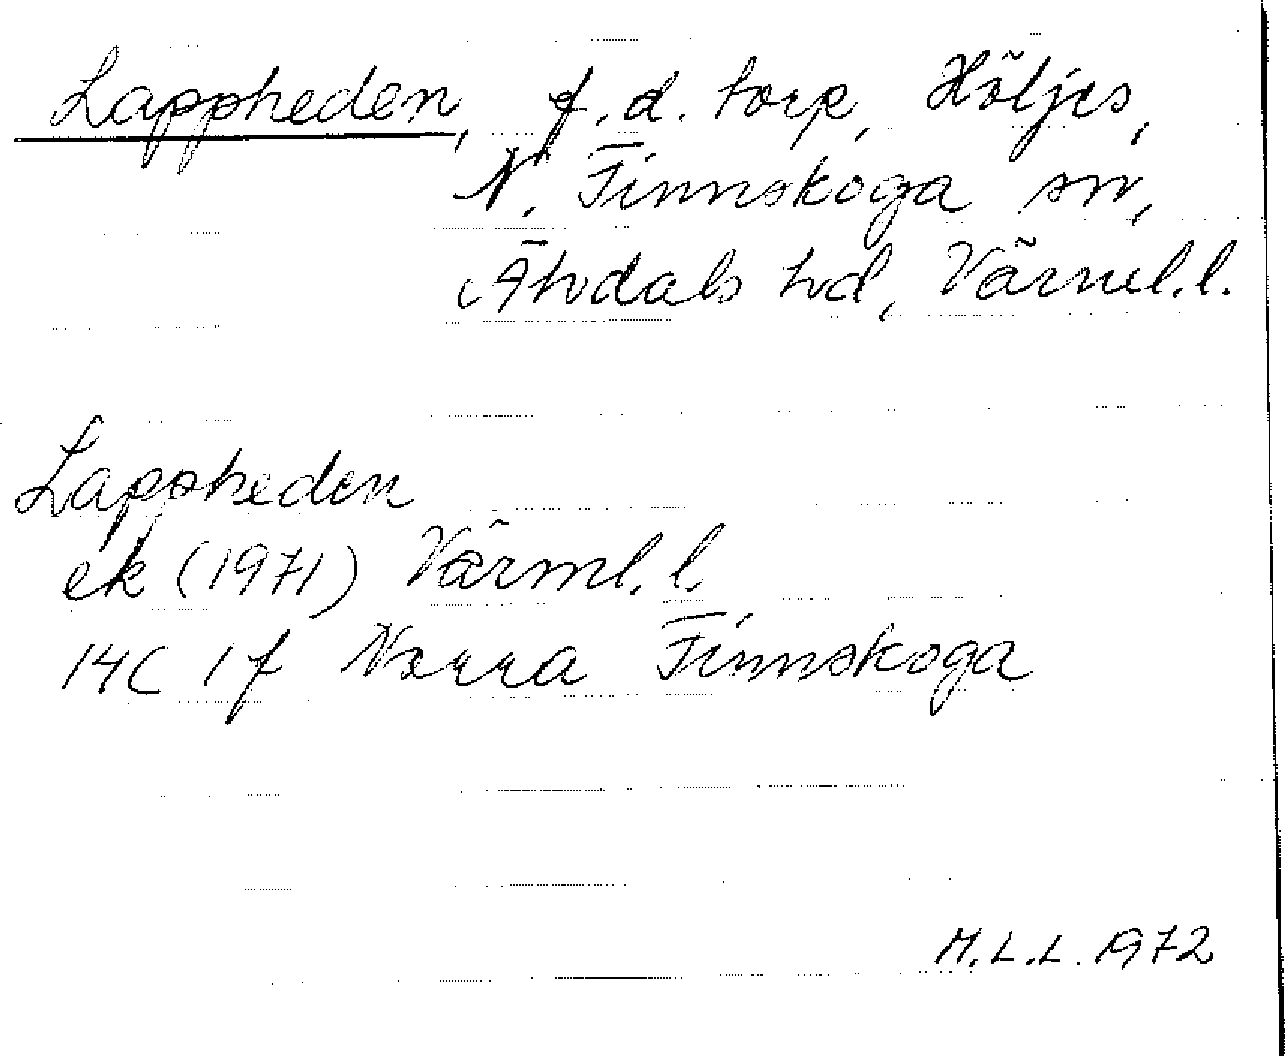 Lappheden, f.d. torp, Höljes,
N. Finnskoga sn,
Älvdals hd, Värml.l.
Lappheden
ek (1971) Värml.l.
14C 1f Norra Finnskoga
M.L.L. 1972